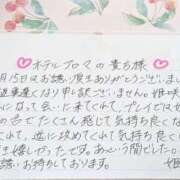 ホテルプロマの貴方様
月15日はお誘い頂きありがとうございま
返事遅くなり申し訳ございません。姫咲
なって会いに来てくれて、プレイでは
の舌でたくさん感じて気持ち良くな
て、逆に攻めてくれて気持ち良く
ま嬉しかったです。あっという間でした。
お誘いお待ちしております。